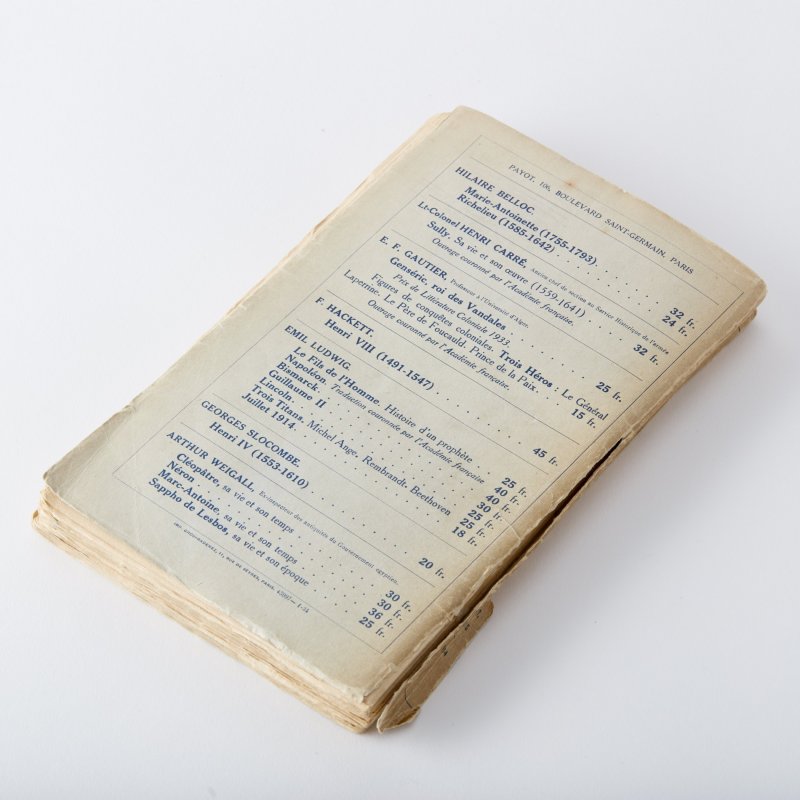 PAYOT, 106, BOULEVARD SAINT-GERMAIN, PARIS
HILAIRE BELLOC.
Marie-Antoinette (1755-1793). . . . . . . . 32 fr.
Richelieu (1585-1642) . . . . . . . . . . 24 fr.
Lt-Colonel HENRI CARRÉ, Ancien chef de section au Service Historique de l'armée
Sully. Sa vie et son œuvre (1559-1641) . . . . . 32 fr.
Ouvrage couronné par l'Académie française.
E. F. GAUTIER, Professeur à l'Université d'Alger.
Genséric, roi des Vandales . . . . . . . . 25 fr.
Prix de Littérature Coloniale 1933.
Figures de conquêtes coloniales. Trois Héros : Le Général
Laperrine, Le Père de Foucauld, Prince de la Paix. . . 15 fr.
Ouvrage couronné par l'Académie française.
F. HACKETT.
Henri VIII (1491-1547) . . . . . . . . . 45 fr.
EMIL LUDWIG.
Le Fils de l'Homme, Histoire d'un prophète . . 25 fr.
Napoléon. Traduction couronnée par l'Académie française 40 fr.
Bismarck. . . . . . . . . . . 40 fr.
Guillaume II . . . . . . . . . . 30 fr.
Lincoln. . . . . . . . . . . 25 fr.
Trois Titans. Michel Ange, Rembrandt, Beethoven 25 fr.
Juillet 1914. . . . . . . . . . . 18 fr.
GEORGES SLOCOMBE.
Henri IV (1553-1610) . . . . . . . . . 20 fr.
ARTHUR WEIGALL, Ex-inspecteur des antiquités du Gouvernement égyptien.
Cléopâtre, sa vie et son temps . . . . . . 30 fr.
Néron. . . . . . . . . . . 30 fr.
Marc-Antoine, sa vie et son temps . . . . . 36 fr.
Sappho de Lesbos, sa vie et son époque . . . . 25 fr.